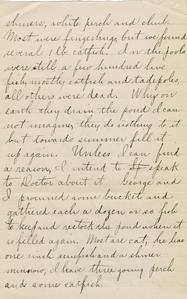 shiners, white perch and chub.
Most were fingerlings but we found
several 1 lb catfish. In the pools
were still a few hundred live
fish, mostly catfish and tadpoles,
all others were dead. Why on
earth they drain the pond I can
not imagine, they do nothing to it
but toward summer fill it
up again. Unless I can find
a reason, I intend to speak
to Doctor about it. George and
I procured some bucket and
gathered each a dozen or so fish
to keep and restock the pond when it
is filled again. Most are cat, he has
one sunfish and a shiner
minnow, I have three young perch
and some catfish.